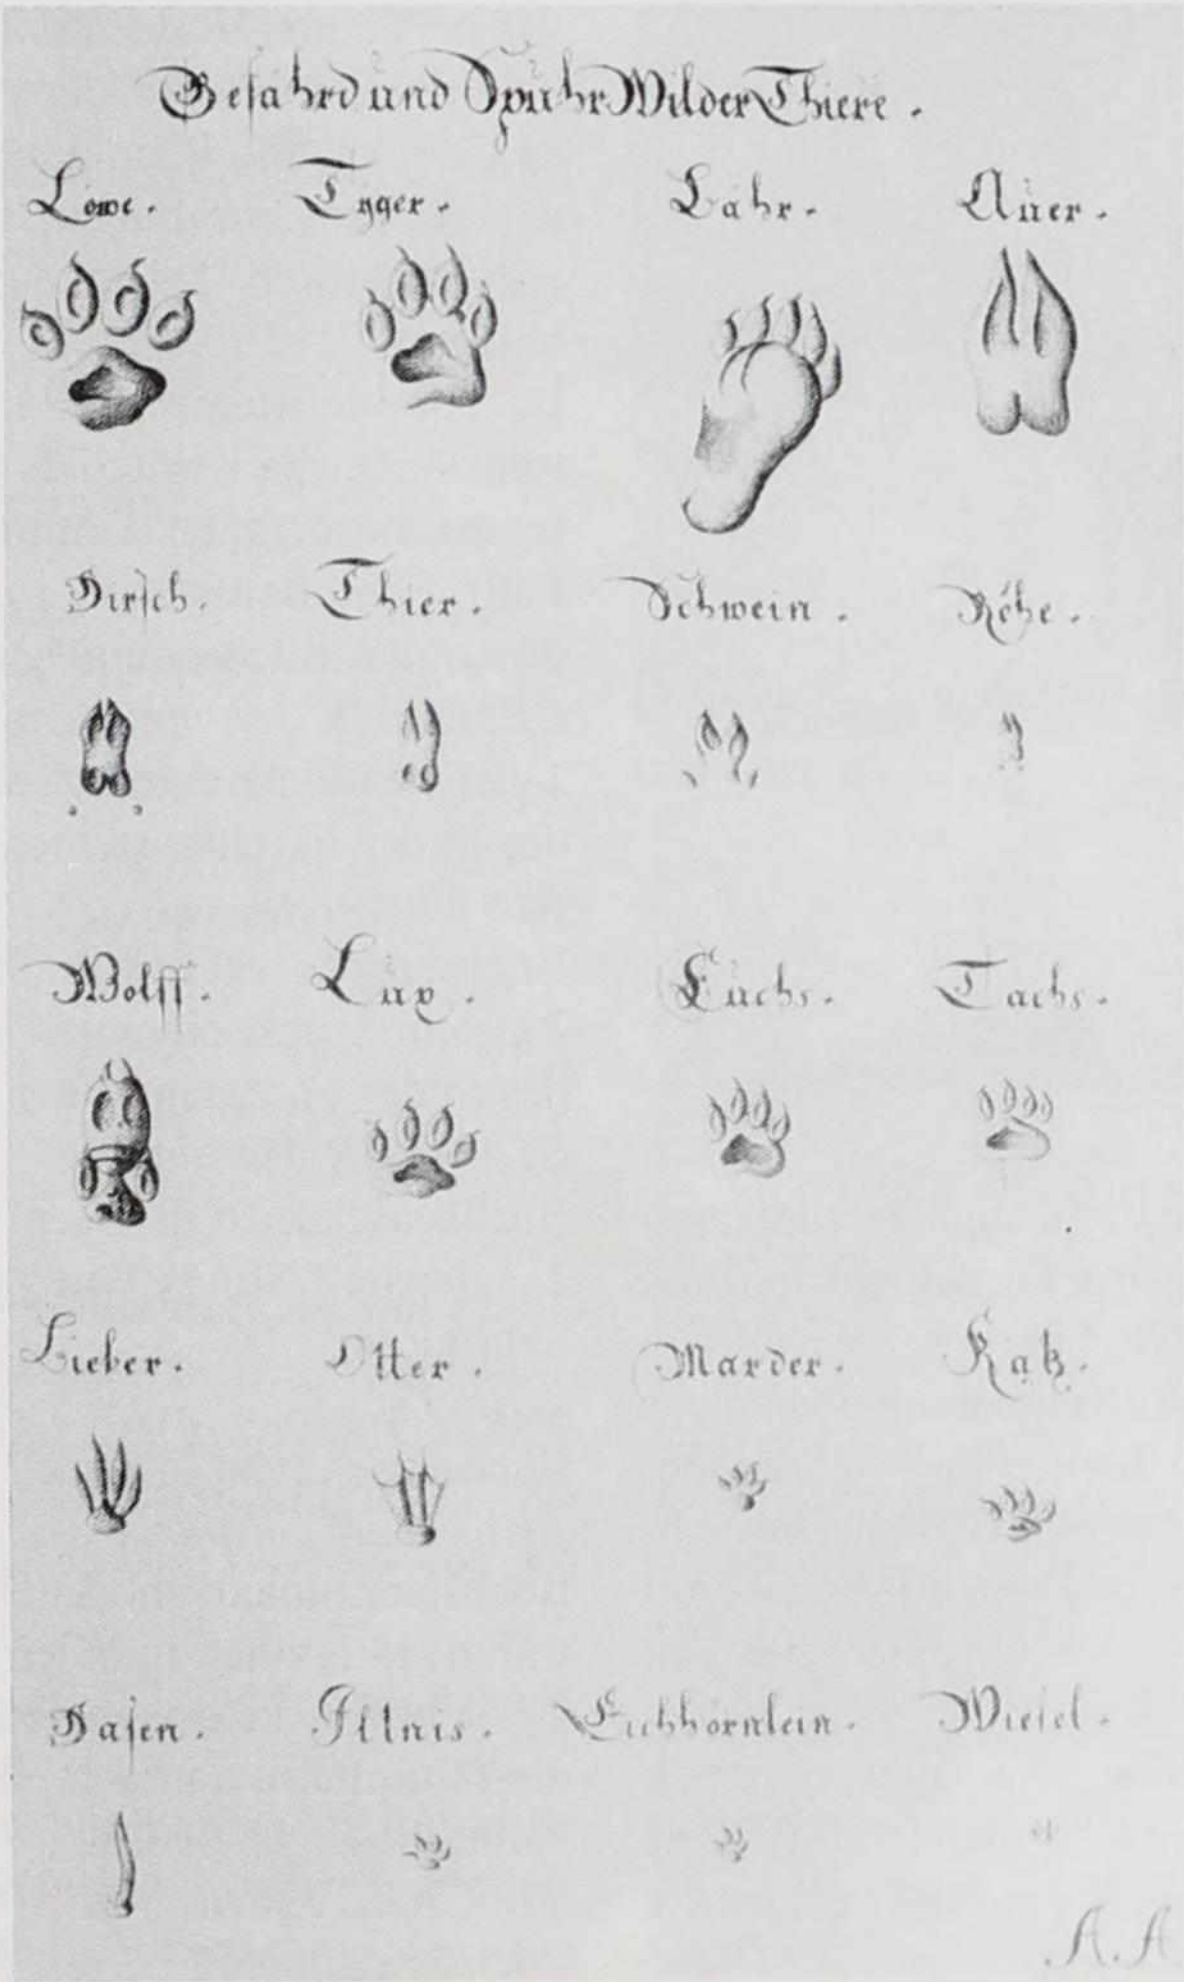 Gefahrd und Spuhr Wilder Thiere.
Löwe. Tyger. Bahr. Auer.
Hirsch. Thier. Schwein. Rehe.
Wolff. Lux. Fuchs. Tachs.
Bieber. Otter. Marder. Katz.
Hasen. Iltnis. Eichhörnlein. Wiesel.
A. A